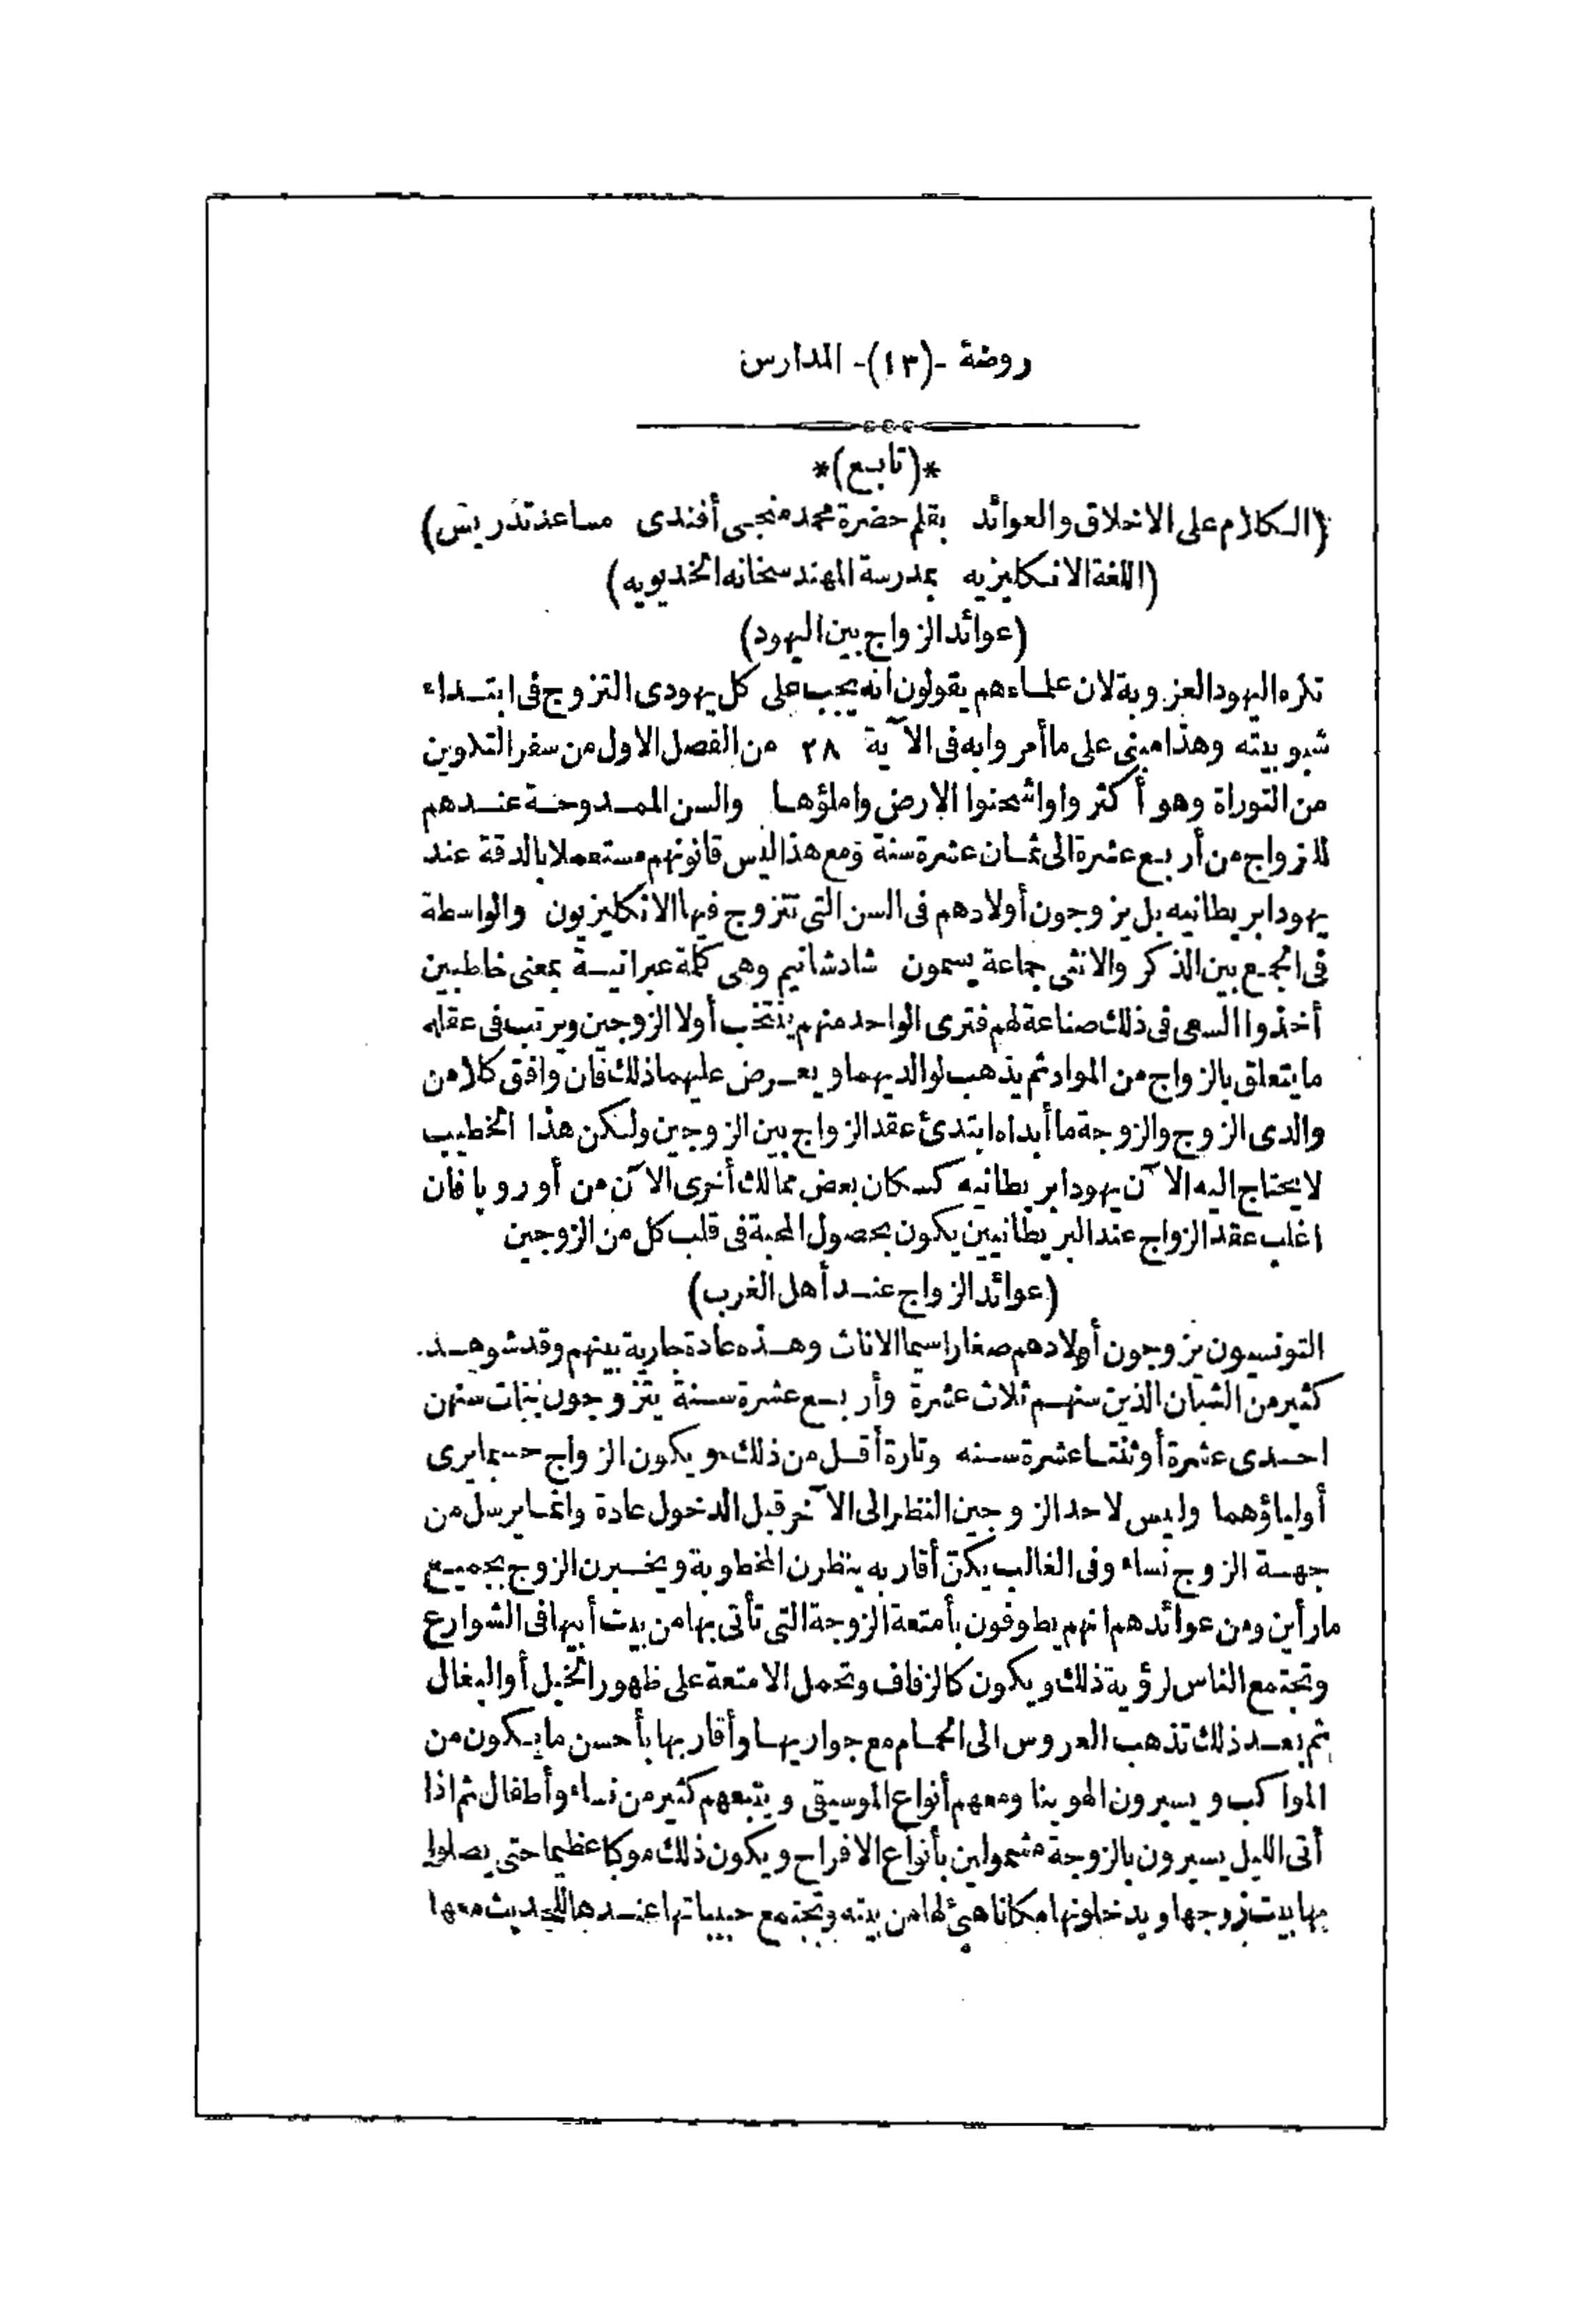 روضة -(١٣)- المدارس
*(تابع)*
(الكلام على الاخلاق والعوائد بقلم حضرة محمد منجى أفندى مساعد تدريس)
(اللغة الانكليزيه بمدرسة المهندسخانه الخديويه)
(عوائد الزواج بين اليهود)
تكره اليهود العزوبة لان علماءهم يقولون انه يجب على كل يهودى التزوج فى ابتداء
شبوبيته وهذا مبنى على ما أمروا به فى الآية ٢٨ من الفصل الاول من سفر التكوين
من التوراة وهو أكثروا واشحنوا الارض واملؤها والسن الممدوحة عندهم
للزواج من أربع عشرة الى ثمان عشرة سنة ومع هذا ليس قانونهم مستعملا بالدقة عند
يهود ابريطانيه بل يزوجون أولادهم فى السن التى تتزوج فيها الانكليزيون والواسطة
فى الجمع بين الذكر والانثى جماعة يسمون شادشانيم وهى كلمة عبرانية بمعنى خاطبين
أخذوا السعى فى ذلك صناعة لهم فترى الواحد منهم ينتخب أولا الزوجين ويرتب فى عقله
ما يتعلق بالزواج من المواد ثم يذهب لوالديهما ويعرض عليهما ذلك فان وافق كلا من
والدى الزوج والزوجة ما أبداه ابتدئ عقد الزواج بين الزوجين ولكن هذا الخطيب
لا يحتاج اليه الآن يهود ابريطانيه كسكان بعض ممالك أخرى الآن من أوروبا فان
اغلب عقد الزواج عند البريطانيين يكون بحصول المحبة فى قلب كل من الزوجين
(عوائد الزواج عند أهل الغرب)
التونسيون يزوجون أولادهم صغارا سيما الاناث وهذه عادة جارية بينهم وقد شوهد
كثير من الشبان الذين سنهم ثلاث عشرة وأربع عشرة سنة يتزوجون ببنات سنهن
احدى عشرة أو ثنتا عشرة سنه وتارة أقل من ذلك ويكون الزواج حسبما يرى
أولياؤهما وليس لاحد الزوجين النظر الى الآخر قبل الدخول عادة وانما يرسل من
جهة الزوج نساء وفى الغالب يكنّ أقاربه ينظرن المخطوبة ويخبرن الزوج بجميع
ما رأين ومن عوائدهم انهم يطوفون بأمتعة الزوجة التى تأتى بها من بيت أبيها فى الشوارع
وتجتمع الناس لرؤية ذلك ويكون كالزفاف وتحمل الامتعة على ظهور الخيل أو البغال
ثم بعد ذلك تذهب العروس الى الحمام مع جواريها وأقاربها بأحسن ما يكون من
المواكب ويسيرون الهوينا ومعهم أنواع الموسيقى ويتبعهم كثير من نساء وأطفال ثم اذا
أتى الليل يسيرون بالزوجة مشمولين بأنواع الافراح ويكون ذلك موكبا عظيما حتى يصلوا
بها بيت زوجها ويدخلونها مكانا هيئ لها من بيته وتجتمع حبيباتها عندها للحديث معها